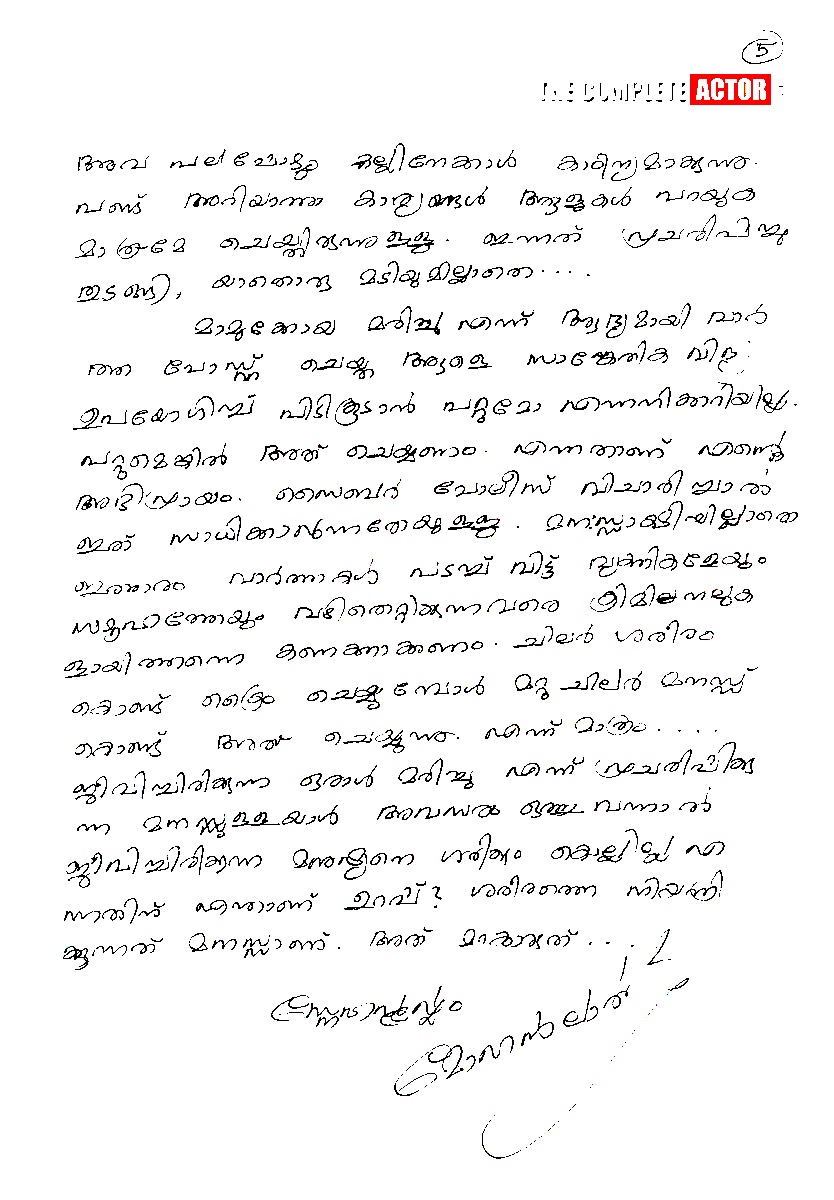 5
THE COMPLETE ACTOR
അവ പലപ്പോഴും കല്ലിനേക്കാൾ കാഠിന്യമാകുന്നു.
പണ്ട് അറിയാത്ത കാര്യങ്ങൾ ആളുകൾ പറയുക
മാത്രമേ ചെയ്തിരുന്നുള്ളൂ. ഇന്നത് പ്രചരിപ്പിച്ചു
തുടങ്ങി, യാതൊരു മടിയുമില്ലാതെ....
മാമുക്കോയ മരിച്ചു എന്ന് ആദ്യമായി വാർ
ത്ത പോസ്റ്റ് ചെയ്ത ആളെ സാങ്കേതിക വിദ്യ
ഉപയോഗിച്ച് പിടികൂടാൻ പറ്റുമോ എന്നെനിക്കറിയില്ല.
പറ്റുമെങ്കിൽ അത് ചെയ്യണം. എന്നതാണ് എന്റെ
അഭിപ്രായം. സൈബർ പോലീസ് വിചാരിച്ചാൽ
ഇത് സാധിക്കാവുന്നതേയുള്ളൂ. മനസ്സാക്ഷിയില്ലാതെ
ഇത്തരം വാർത്തകൾ പടച്ച് വിട്ട് വ്യക്തികളേയും
സമൂഹത്തേയും വഴിതെറ്റിക്കുന്നവരെ ക്രിമിനലുക
ളായിത്തന്നെ കണക്കാക്കണം. ചിലർ ശരീരം
കൊണ്ട് ക്രൈം ചെയ്യുമ്പോൾ മറ്റു ചിലർ മനസ്സ്
കൊണ്ട് അത് ചെയ്യുന്നു. എന്ന് മാത്രം....
ജീവിച്ചിരിക്കുന്ന ഒരാൾ മരിച്ചു എന്ന് പ്രചരിപ്പിക്കു
ന്ന മനസ്സുള്ളയാൾ അവസരം ഒത്തു വന്നാൽ
ജീവിച്ചിരിക്കുന്ന മനുഷ്യനെ ശരിക്കും കൊല്ലില്ല എ
ന്നതിന് എന്താണ് ഉറപ്പ്? ശരീരത്തെ നിയന്ത്രി
ക്കുന്നത് മനസ്സാണ്. അത് മറക്കരുത്...!
സ്നേഹപൂർവ്വം
മോഹൻലാൽ